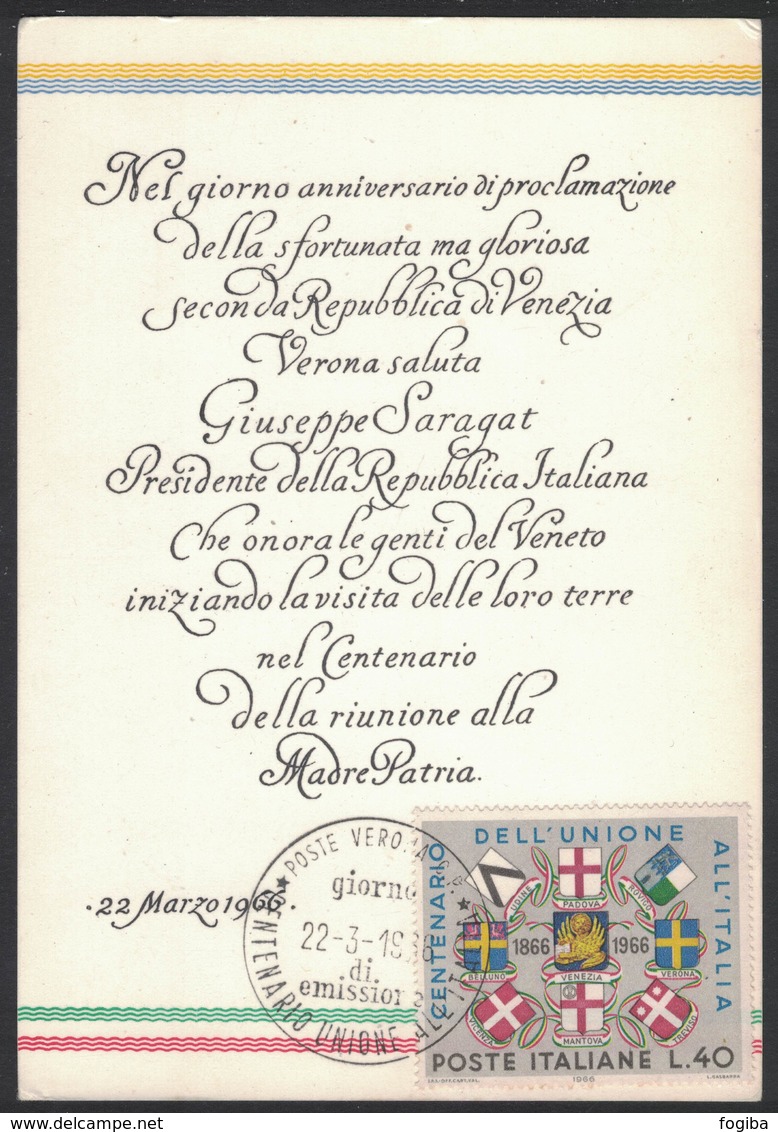 Nel giorno anniversario di proclamazione
della sfortunata ma gloriosa
seconda Repubblica di Venezia
Verona saluta
Giuseppe Saragat
Presidente della Repubblica Italiana
Che onora le genti del Veneto
iniziando la visita delle loro terre
nel Centenario
della riunione alla
Madre Patria.
.22 Marzo 1966.
POSTE VERONA
giorno
22-3-1966
di
emissione
CENTENARIO UNIONE ALL'ITALIA
CENTENARIO DELL'UNIONE ALL'ITALIA
UDINE
PADOVA
ROVIGO
1866
1966
BELLUNO
VENEZIA
VERONA
VICENZA
MANTOVA
TREVISO
POSTE ITALIANE L.40
1966
fogiba